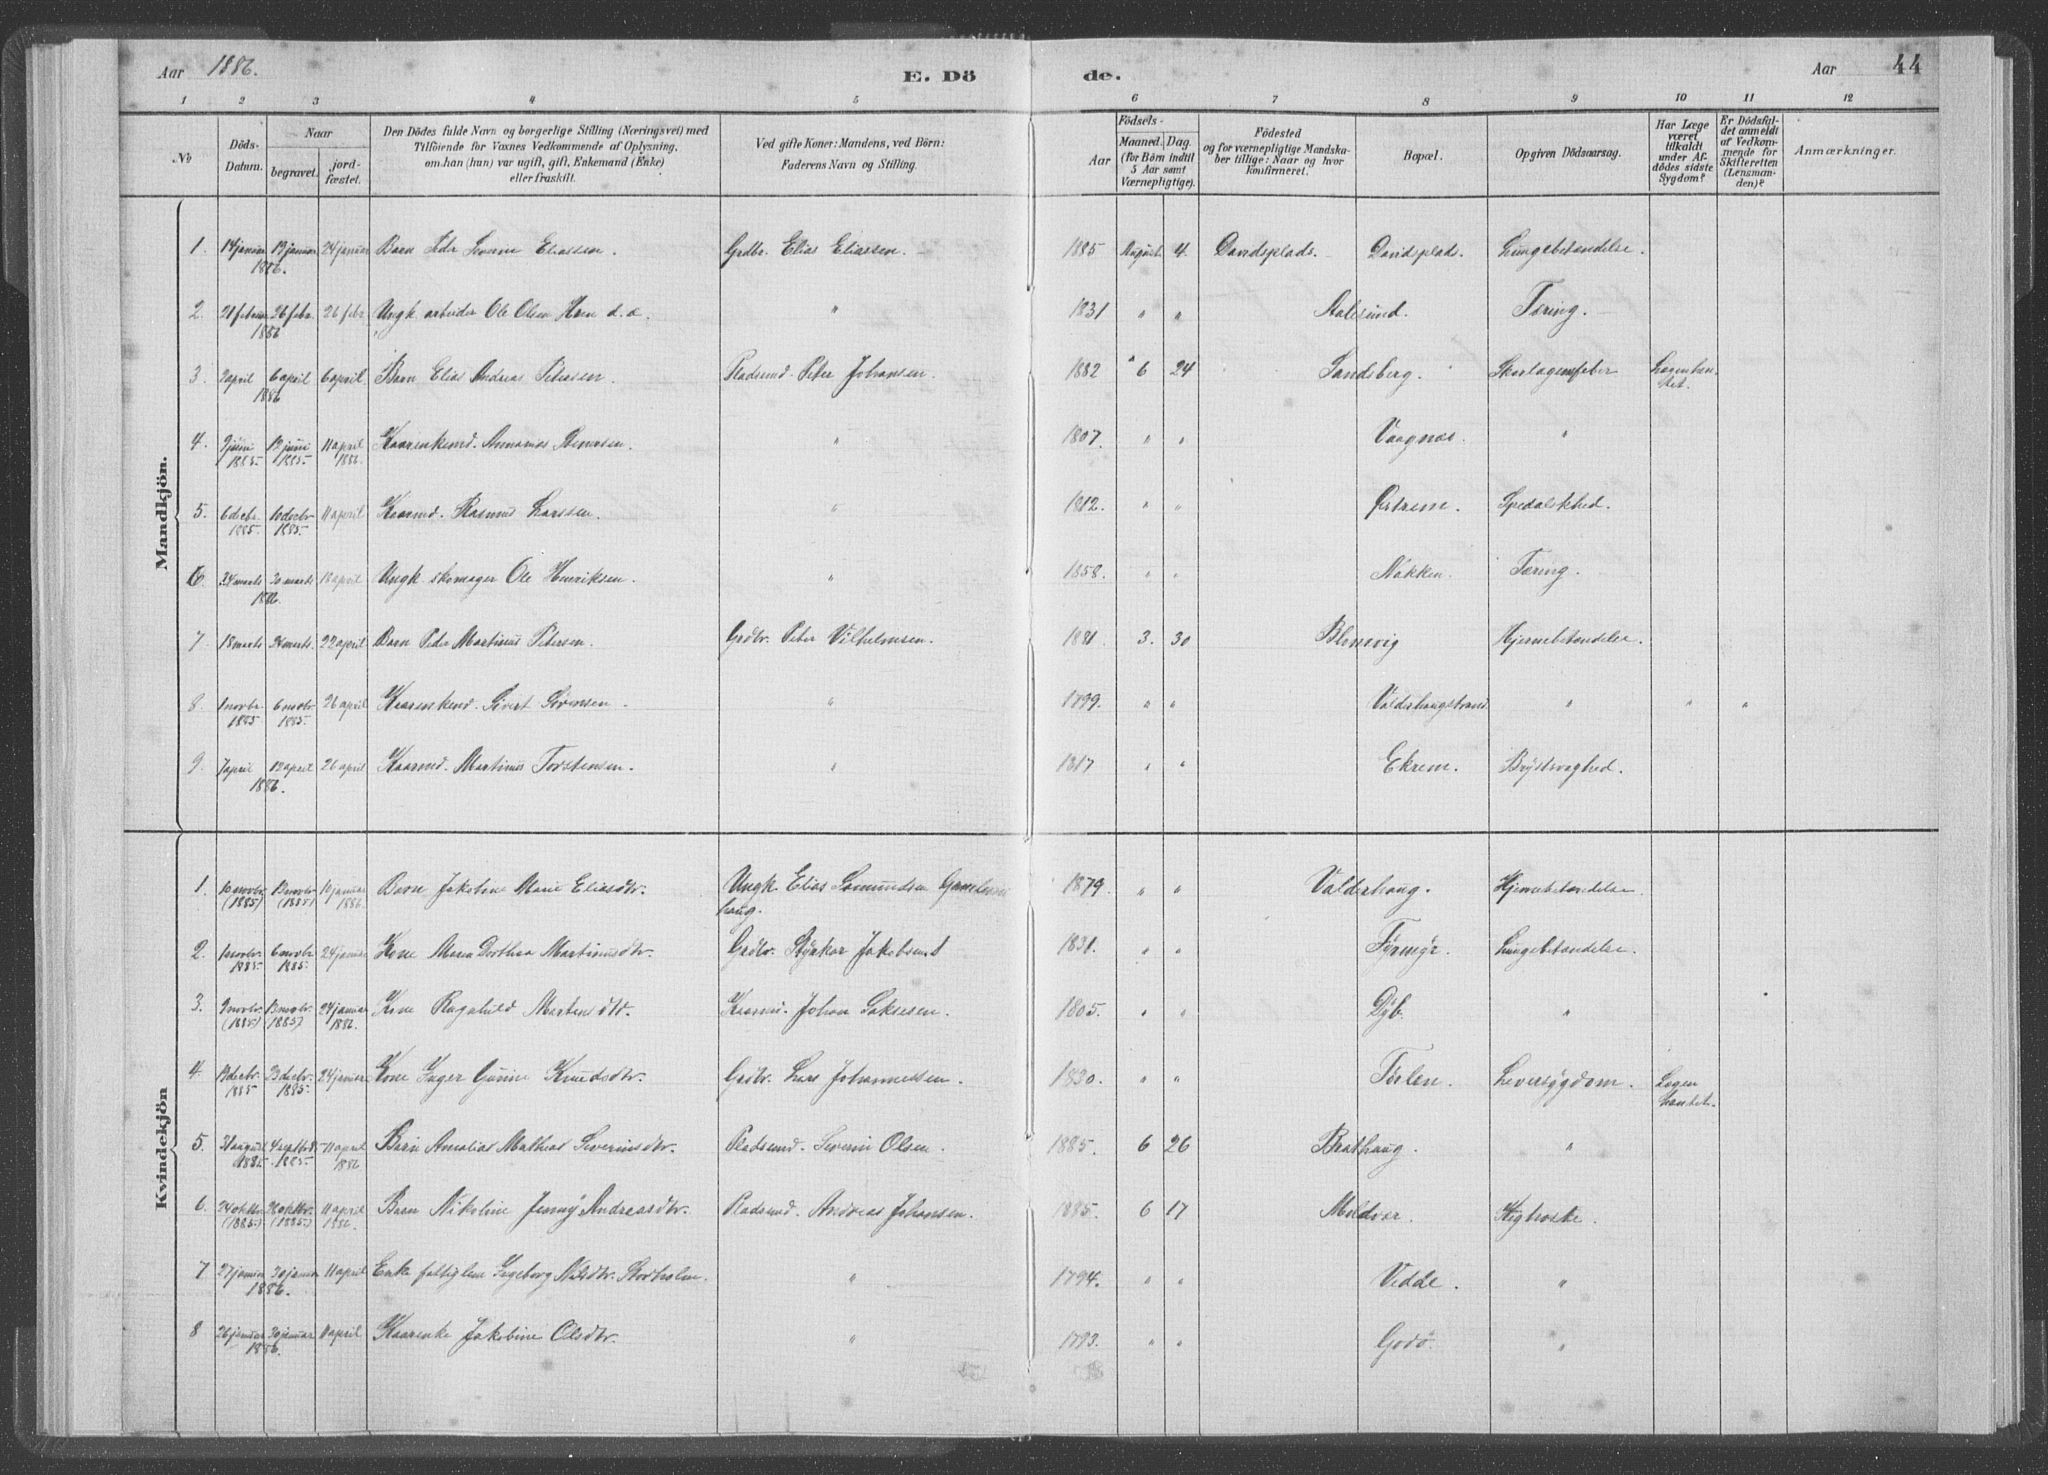 Aar 1886. E. Dö de. Aar 44
1 2 3 4 5 6 7 8 9 10 11 12
No
Döds-Datum.
Naar
begravet.
jord-fæstet.
Den Dödes fulde Navn og borgerlige Stilling (Næringsvei) med
Tilföiende for Voxnes Vedkommende af Oplysning,
om han (hun) var ugift, gift, Enkemand (Enke)
eller fraskilt.
Ved gifte Koner: Mandens, ved Börn:
Faderens Navn og Stilling.
Födsels-
Aar
Maaned. Dag.
(for Börn indtil
5 Aar samt
Værnepligtige).
Födested
og for værnepligtige Mandska-
ber tillige: Naar og hvor
konfirmeret.
Bopæl.
Opgiven Dödsaarsag.
Har Læge
været
tilkaldt
under Af-
dödes sidste
Sygdom?
Er Dödsfal-
det anmeldt
af Vedkom-
mende for
Skifteretten
(Lensman-
den)?
Anmærkninger.
Mandkjön.
1. 14 januar 19 januar 24 januar Barn Peder Severin Eliassen. Grdbr. Elias Eliassen. 1885 August 4. Davidsplads. Davidsplads. Lungebetændelse.
1886.
2. 21 februar 26 febr. 26 febr. Ungk. arbeider Ole Olsen d. æ. " 1831 " " Aalesund. Tæring.
1886
3. 2 april 6 april 6 april Barn Elias Andreas Petersen. Pladsmd. Peter Johansen. 1882 6 24 Sandsberg. Skarlagensfeber
1886
4. 9 juni 12 juni 11 april Kaarenkemd. Ananias " 1807. " " Vaagnes. "
1885. 1885. 1886.
5. 6 decbr. 10 decbr. 11 april Kaarmd. Rasmus Larssen. " 1812. " " Østrem. Spedalskhed.
1885. 1885.
6. 24 marts 30 marts 18 april Ungk. skomager Ole Henriksen. " 1858. " " Nakken. Tæring.
1886.
7. 18 marts 24 marts. 22 april Barn Peder Martinus Petersen. Grdbr. Peter Vilhelmsen. 1881. 3. 30 Blomvig Hjernebetændelse.
8. 1 novbr. 6 novbr. 26 april Kaarenkemd. Sivert Sørensen. " 1799. " " Valderhaugstrand " " "
1885 1885.
9. 7 april 12 april 26 april Kaarmd. Martinus Torstensen. " 1817 " " Ekrem. Brystsvaghed.
1886.
Kvindekjön
1. 10 novbr. 13 novbr. 10 januar Barn Jakobine Marie Eliasdtr. Ungk. Elias Samundsen 1879 " " Valderhaug. Hjernebetændelse.
(1885) (1885) 1886. haug.
2. 1 novbr. 6 novbr. 24 januar Kone Maren Dorthea Martinusdtr. Grdbr. Styrkar Jakobsen. 1831. " " Lungebetændelse.
1885. 1885.
3. 9 novbr. 13 novbr. 24 januar Kone Ragnhild Martensdtr. Kaarm. Johan Saksesen. 1805. " " Dyb. "
(1885) (1885) 1886.
4. 13 decbr. 23 decbr. 24 januar Kone Inger Gurine Knudsdtr. Grdbr. Lars Johannessen. 1830. " " Leversygdom. Lægen
1885 1885. hentet.
5. 31 august 4 septbr. 11 april Barn Amalias Mathea Severinsdtr. Pladsmd. Severin Olsen. 1885. 6 26 Brathaug. "
1885. 1885. 1886
6. 24 oktbr. 28 oktbr. 11 april Barn Nikoline Jenny Andreasdtr. Pladsmd. Andreas Johansen. 1885. 6 17 Kighoste.
(1885.) (1885) 1886.
7 27 januar 30 januar 11 april Enke fattiglem Ingeborg Nilsdtr. Storholm. " 1794. " " Vedde. "
1886.
8 26 januar 30 januar 11 april Kaarenke Jakobine Olsdtr. " 1793. " " Godö. "
1886.